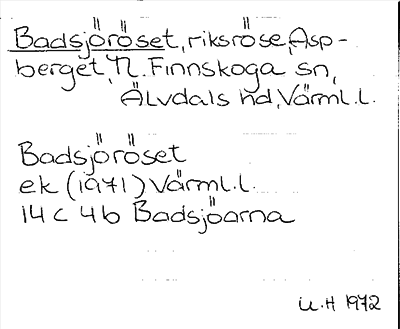 Badsjöröset, riksröse, Asp-
berget, N. Finnskoga sn,
Älvdals hd, Värml. l.
Badsjöröset
ek (1971) Värml. l.
14 c 4b Badsjöarna
U.H 1972